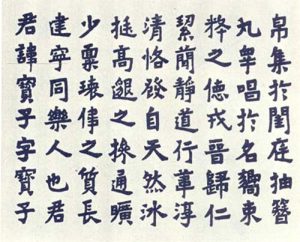 君諱寶子字寶子
建寧同樂人也君
少稟瓌偉之質長
挺高邈之操通曠
清恪發自天然冰
絜簡靜道行葦淳
粹之德戎晉歸仁
九皋唱於名嚮束
帛集於閨庭抽簪